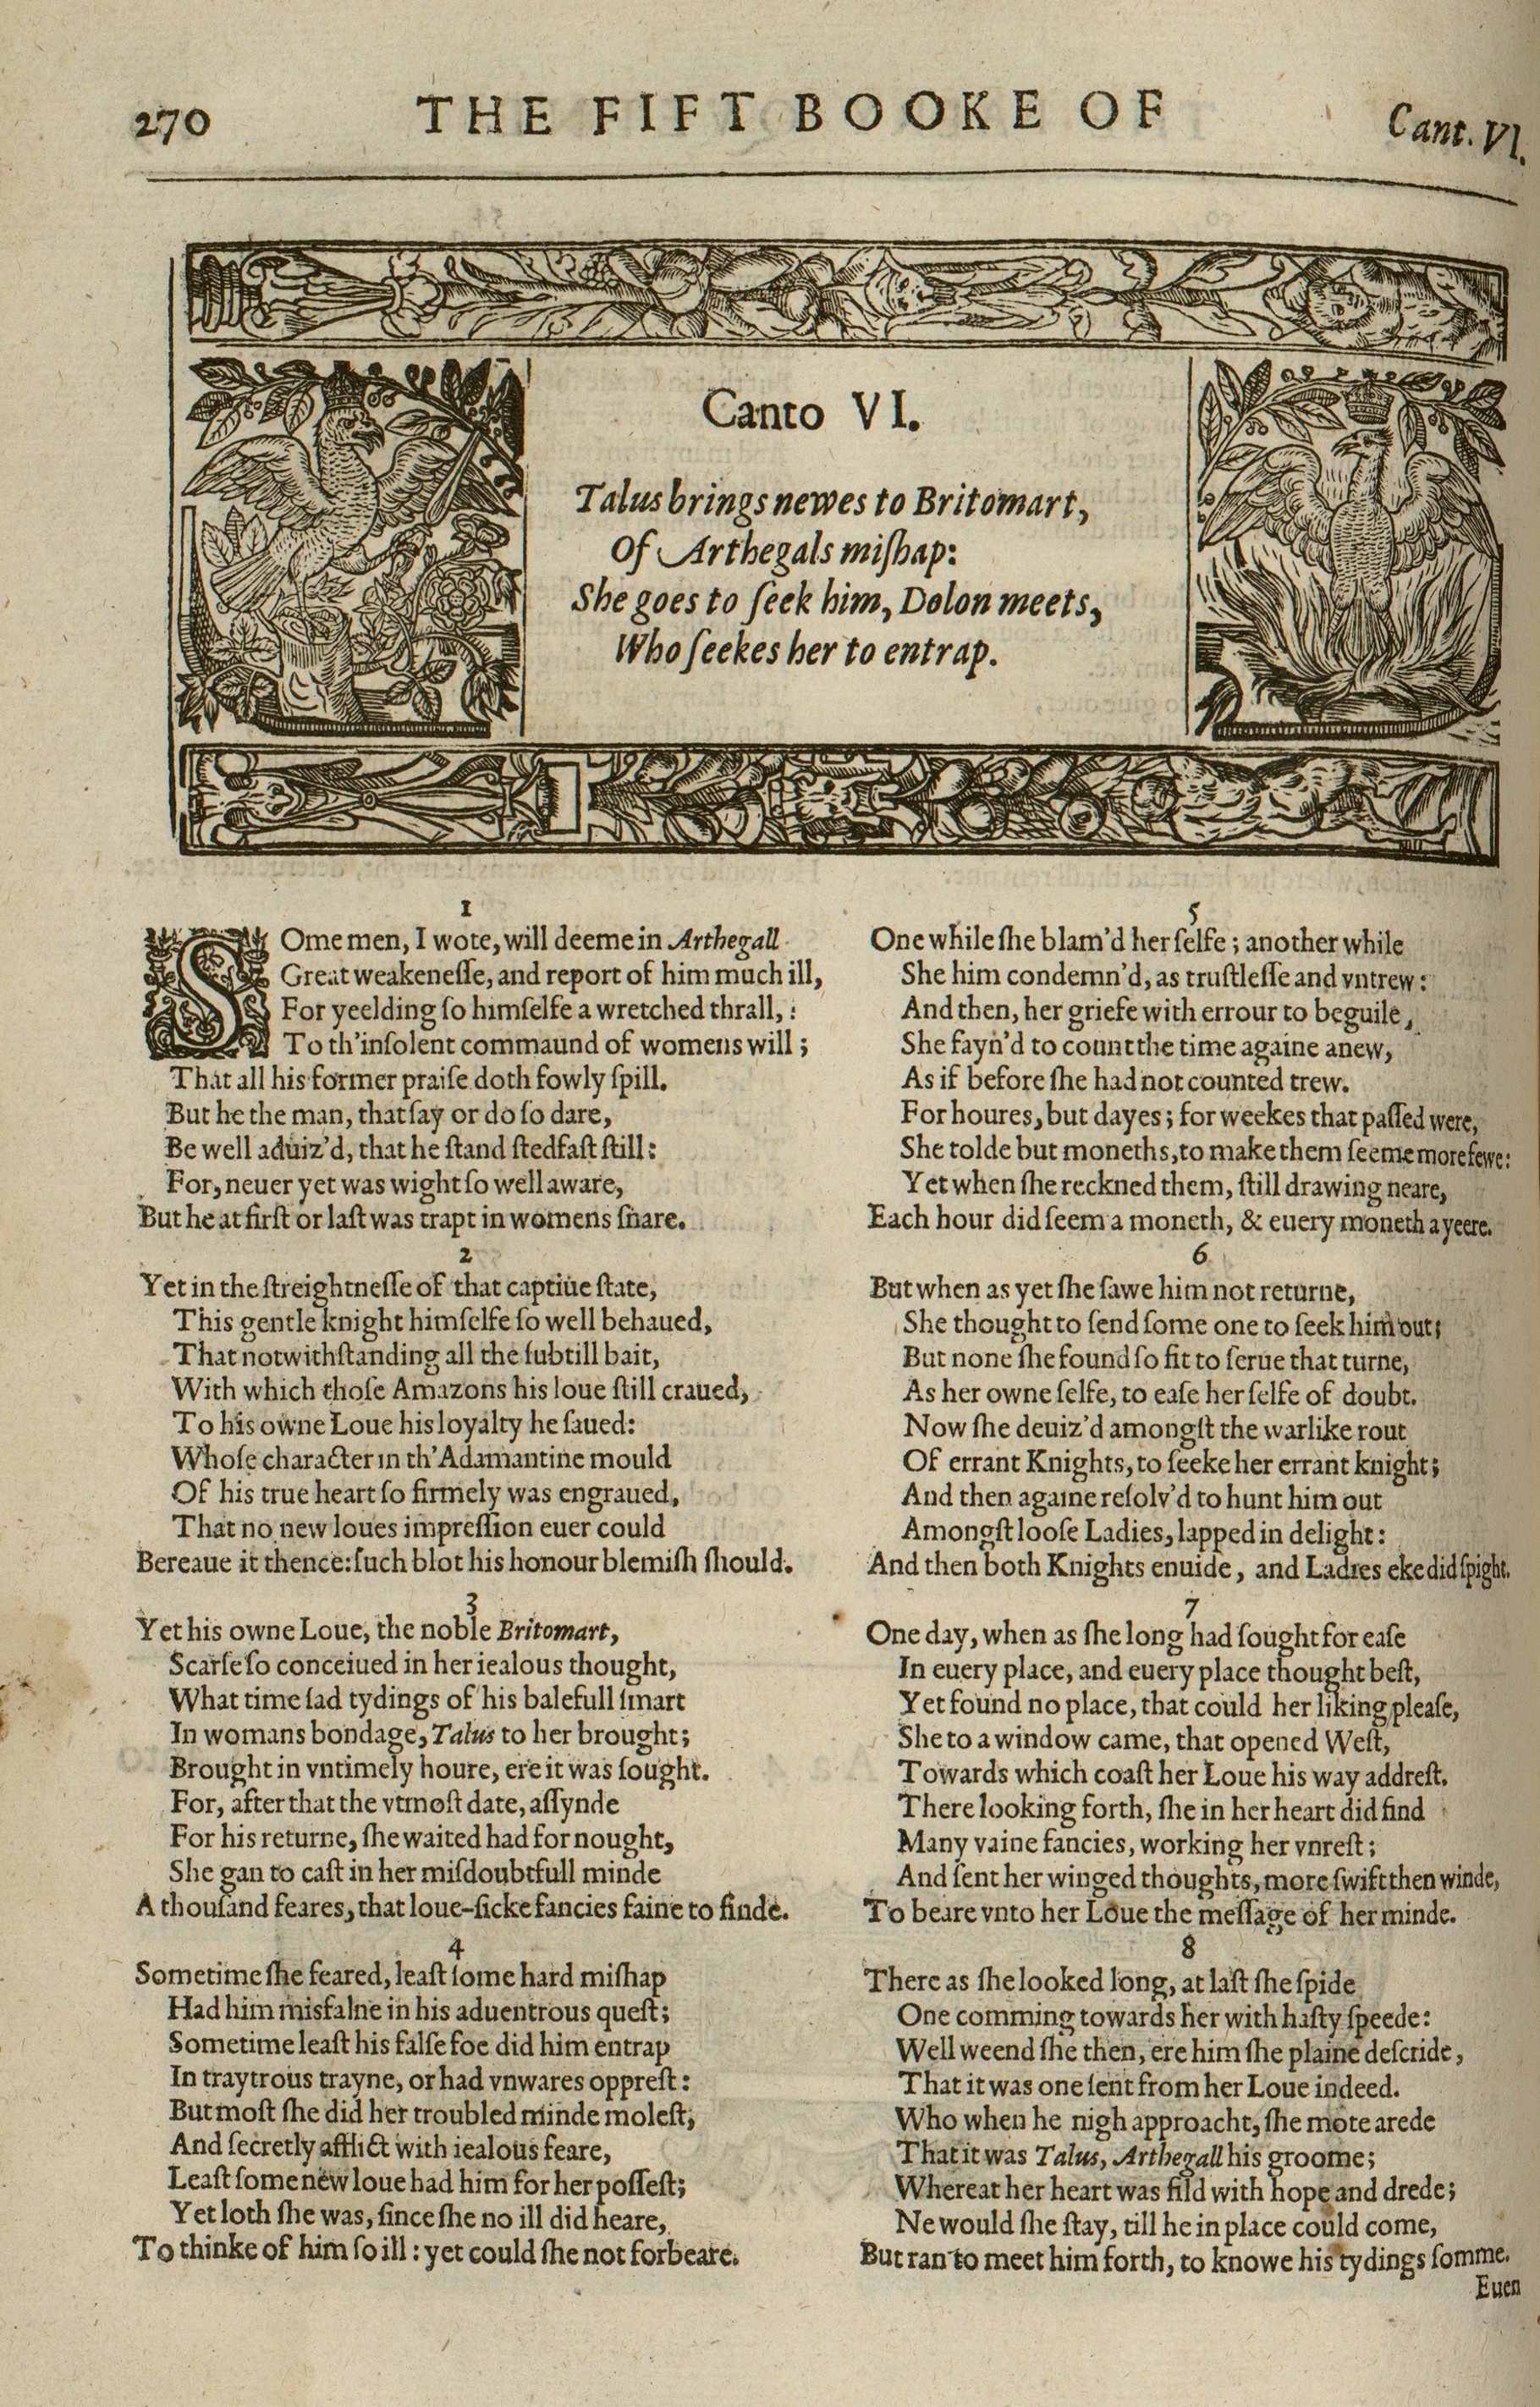 270
THE FIFT BOOKE OF
Cant. VI.
Canto VI.
Talus brings newes to Britomart,
Of Arthegals miſhap:
She goes to ſeek him, Dolon meets,
Who ſeekes her to entrap.
1
SOme men, I wote, will deeme in Arthegall
Great weakeneſſe, and report of him much ill,
For yeelding ſo himſelfe a wretched thrall, :
To th'inſolent commaund of womens will;
That all his former praiſe doth fowly ſpill.
But he the man, that ſay or do ſo dare,
Be well aduiz'd, that he ſtand ſtedfaſt ſtill:
For, neuer yet was wight ſo well aware,
But he at firſt or laſt was trapt in womens ſnare.
2
Yet in the ſtreightneſſe of that captiue ſtate,
This gentle knight himſelfe ſo well behaued,
That notwithſtanding all the ſubtill bait,
With which thoſe Amazons his loue ſtill craued,
To his owne Loue his loyalty he ſaued:
Whoſe character in th'Adamantine mould
Of his true heart ſo firmely was engraued,
That no new loues impreſſion euer could
Bereaue it thence: ſuch blot his honour blemiſh ſhould.
3
Yet his owne Loue, the noble Britomart,
Scarſe ſo conceiued in her iealous thought,
What time ſad tydings of his balefull ſmart
In womans bondage, Talus to her brought;
Brought in vntimely houre, ere it was ſought.
For, after that the vtmoſt date, aſſynde
For his returne, ſhe waited had for nought,
She gan to caſt in her miſdoubtfull minde
A thouſand feares, that loue-ſicke fancies faine to finde.
4
Sometime ſhe feared, leaſt ſome hard miſhap
Had him misfalne in his aduentrous queſt;
Sometime leaſt his falſe foe did him entrap
In traytrous trayne, or had vnwares oppreſt:
But moſt ſhe did her troubled minde moleſt,
And ſecretly afflict with iealous feare,
Leaſt ſome new loue had him for her poſſeſt;
Yet loth ſhe was, ſince ſhe no ill did heare,
To thinke of him ſo ill: yet could ſhe not forbeare.
5
One while ſhe blam'd her ſelfe; another while
She him condemn'd, as truſtleſſe and vntrew:
And then, her griefe with errour to beguile,
She fayn'd to count the time againe anew,
As if before ſhe had not counted trew.
For houres, but dayes; for weekes that paſſed were,
She tolde but moneths, to make them ſeeme more fewe:
Yet when ſhe reckned them, ſtill drawing neare,
Each hour did ſeem a moneth, & euery moneth a yeere.
6
But when as yet ſhe ſawe him not returne,
She thought to ſend ſome one to ſeek him out;
But none ſhe found ſo fit to ſerue that turne,
As her owne ſelfe, to eaſe her ſelfe of doubt.
Now ſhe deuiz'd amongſt the warlike rout
Of errant Knights, to ſeeke her errant knight;
And then againe reſolv'd to hunt him out
Amongſt looſe Ladies, lapped in delight:
And then both Knights enuide, and Ladies eke did ſpight.
7
One day, when as ſhe long had ſought for eaſe
In euery place, and euery place thought beſt,
Yet found no place, that could her liking pleaſe,
She to a window came, that opened Weſt,
Towards which coaſt her Loue his way addreſt.
There looking forth, ſhe in her heart did find
Many vaine fancies, working her vnreſt;
And ſent her winged thoughts, more ſwift then winde,
To beare vnto her Loue the meſſage of her minde.
8
There as ſhe looked long, at laſt ſhe ſpide
One comming towards her with haſty ſpeede:
Well weend ſhe then, ere him ſhe plaine deſcride,
That it was one ſent from her Loue indeed.
Who when he nigh approacht, ſhe mote arede
That it was Talus, Arthegall his groome;
Whereat her heart was fild with hope and drede;
Ne would ſhe ſtay, till he in place could come,
But ran to meet him forth, to knowe his tydings ſomme.
Euen